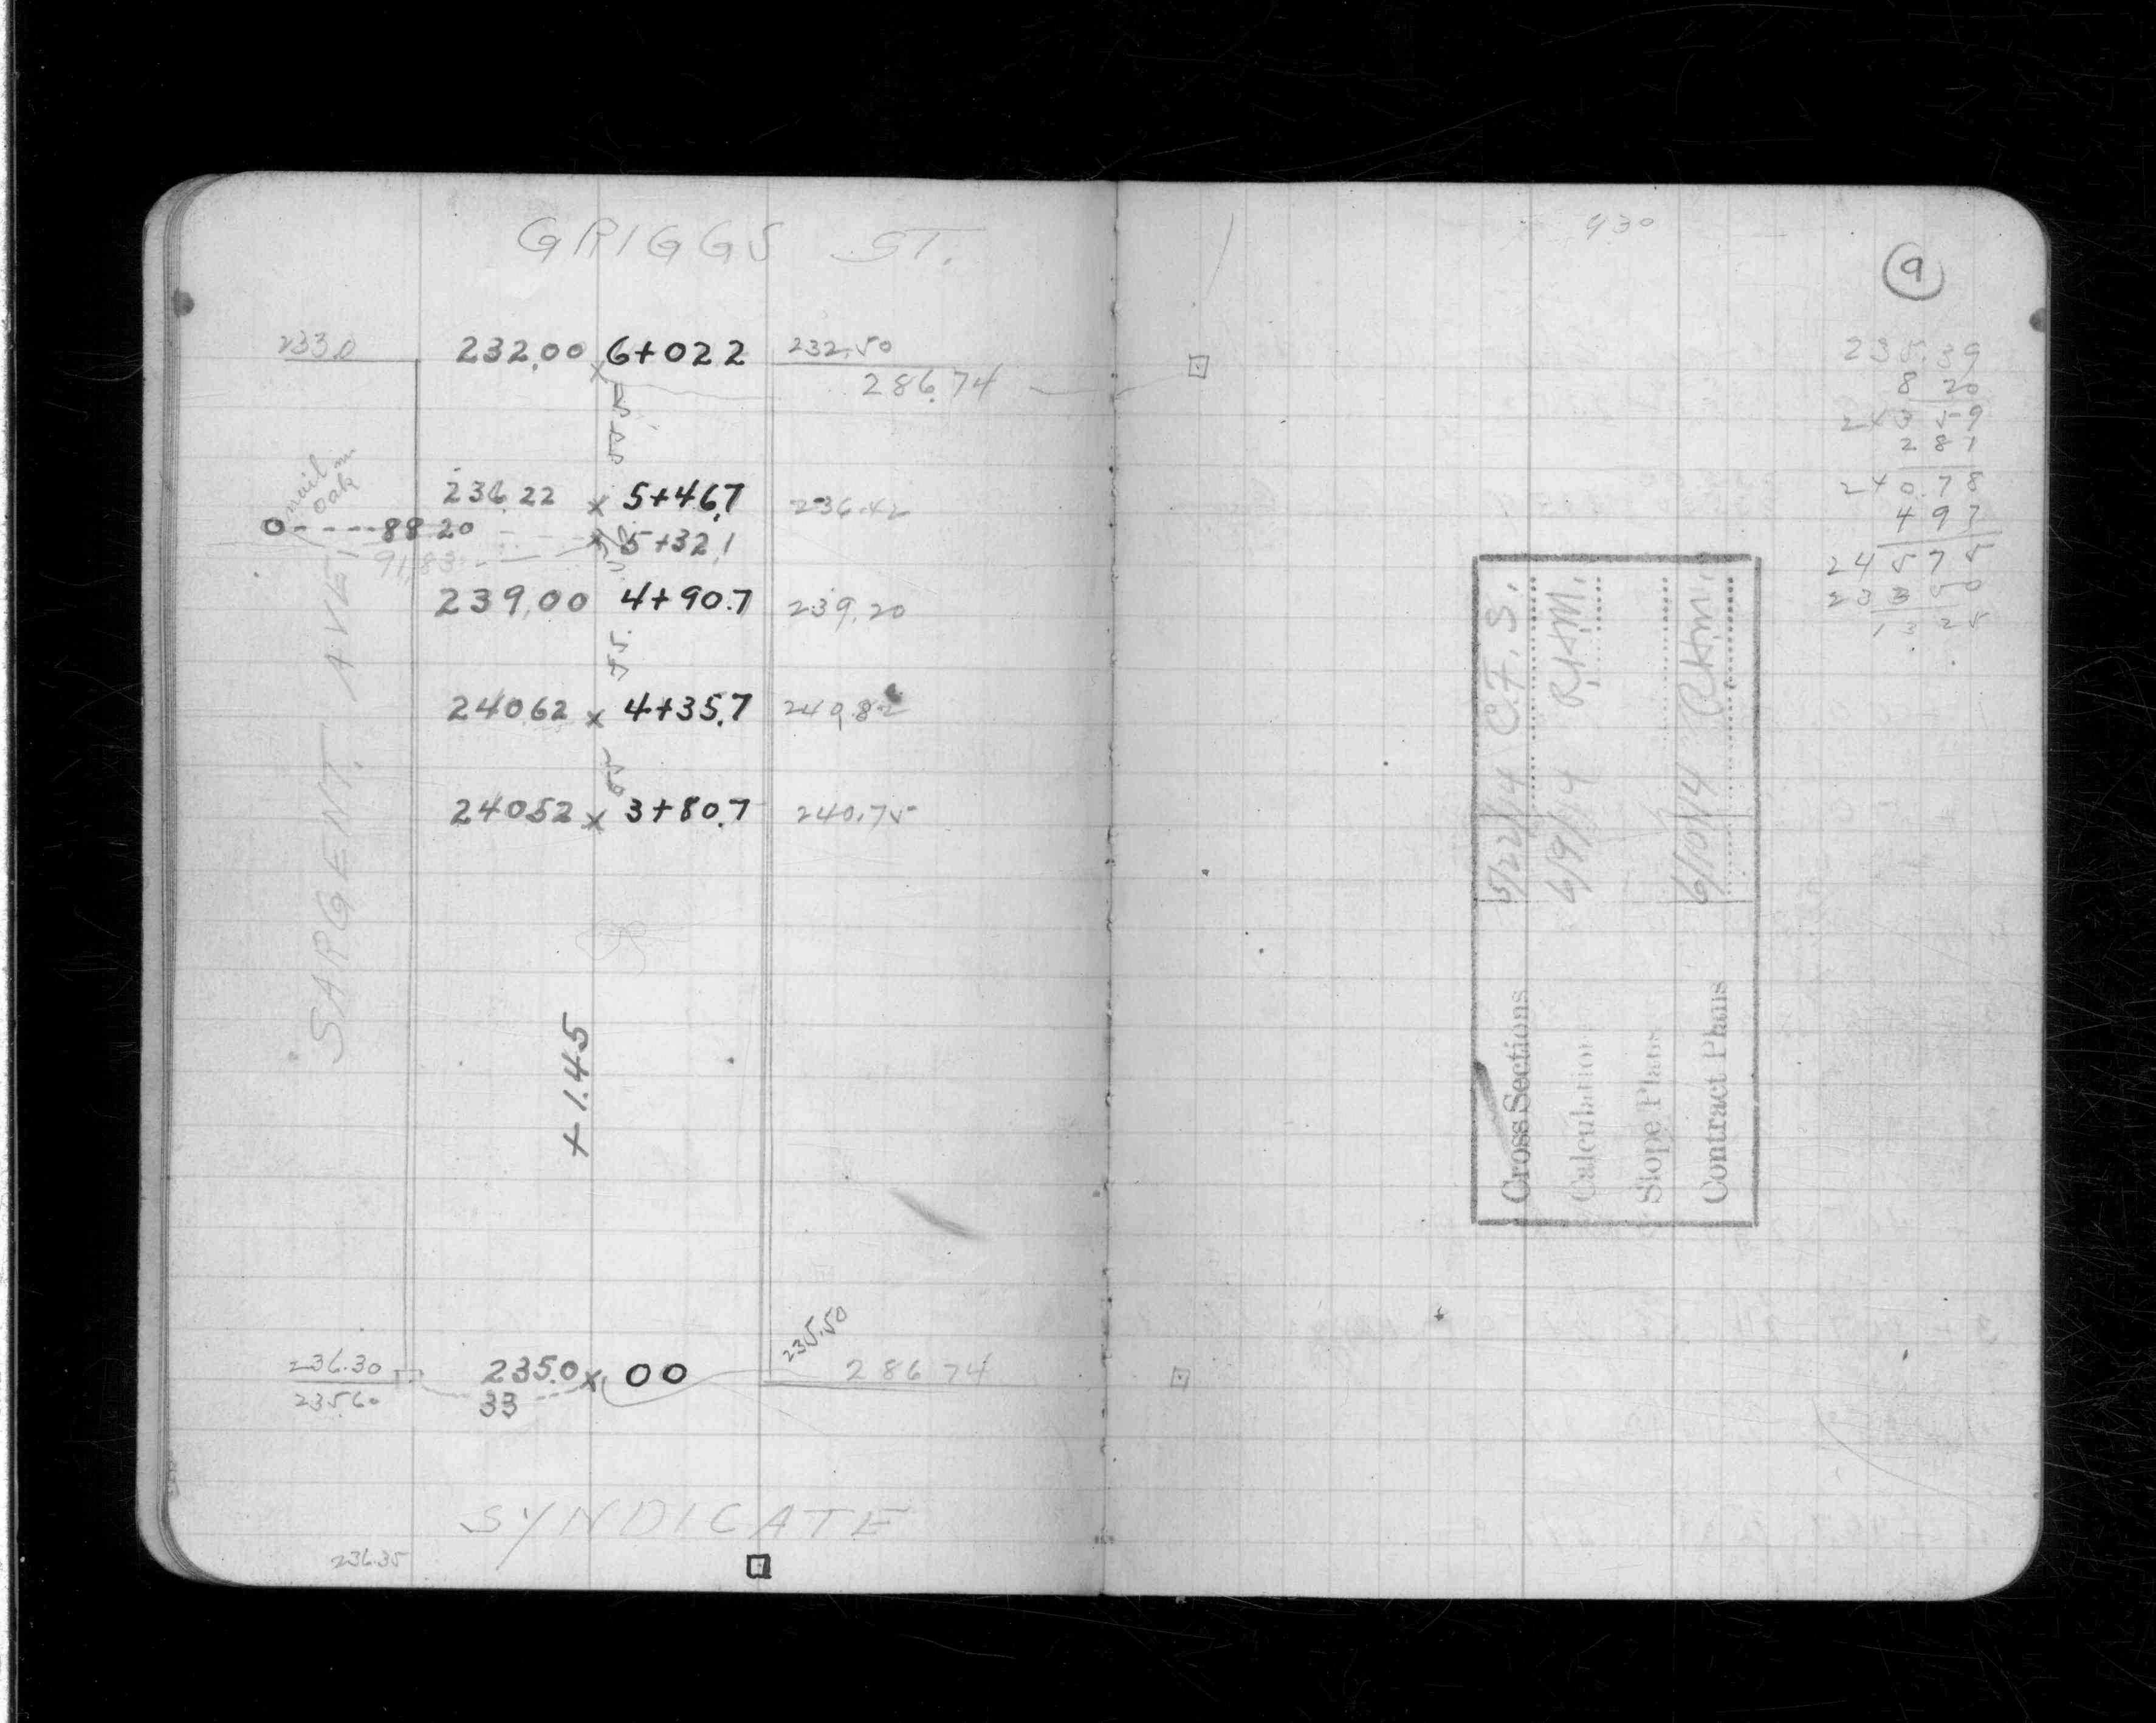 GRIGGS ST.
233.0 232.00 x 6+02.2 232.50
286.74
55.5
nail in oak
236.22 x 5+46.7 236.42
O----88 20 x 5+32.1
91.83
239.00 4+90.7 239.20
55.
240.62 x 4+35.7 240.82
55
240.52 x 3+80.7 240.75
SARGENT. AVE.
+1.45
235.50
236.30 235.0 x 00 286.74
235.60 33
SYNDICATE
236.35
930
9
235.39
8 20
243 59
2 81
240.78
4 97
245 75
233 50
13 25
Cross Sections 5/22/14 C.F.S.
Calculation 6/9/14 R.K.M.
Slope Plans
Contract Plans 6/10/14 R.K.M.